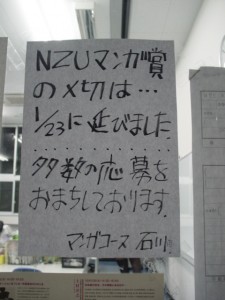 NZUマンガ賞
の〆切は…
1/23に延びました
............
多数の応募を
おまちしております。
マンガコース 石川